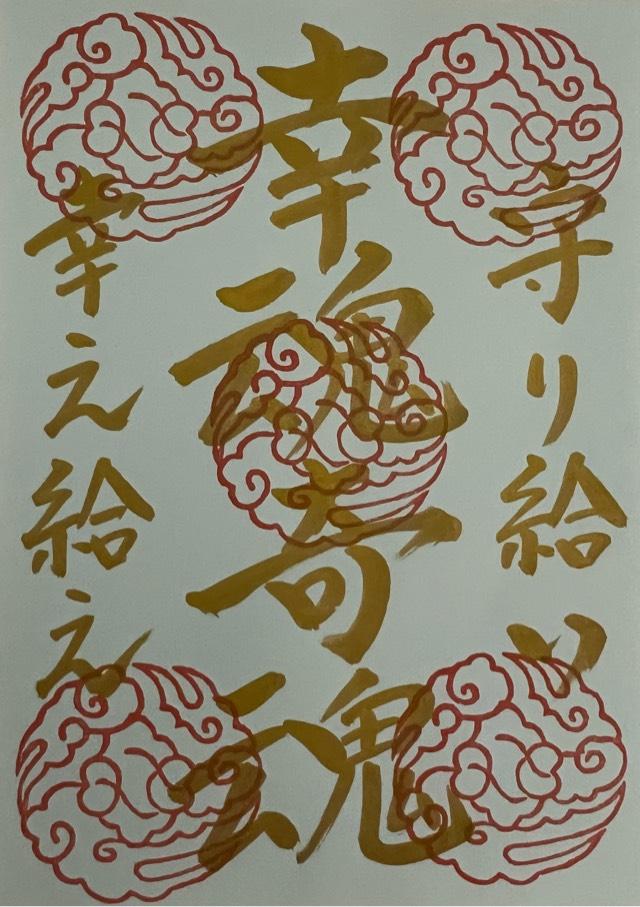 幸魂奇魂
守り給い
幸え給え